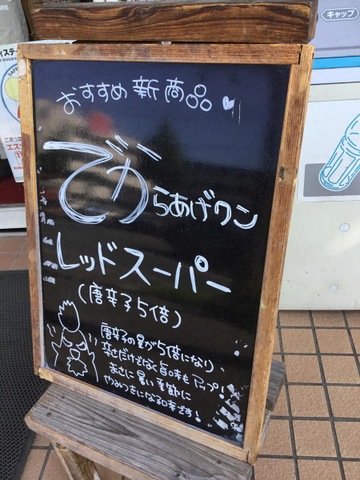 キャップ
おすすめ新商品
でからあげクン
レッドスーパー
(唐辛子5倍)
唐辛子の量が5倍になり、
辛さだけではなく旨味もアップ!
まさに暑い季節に
やみつきになる辛さです!